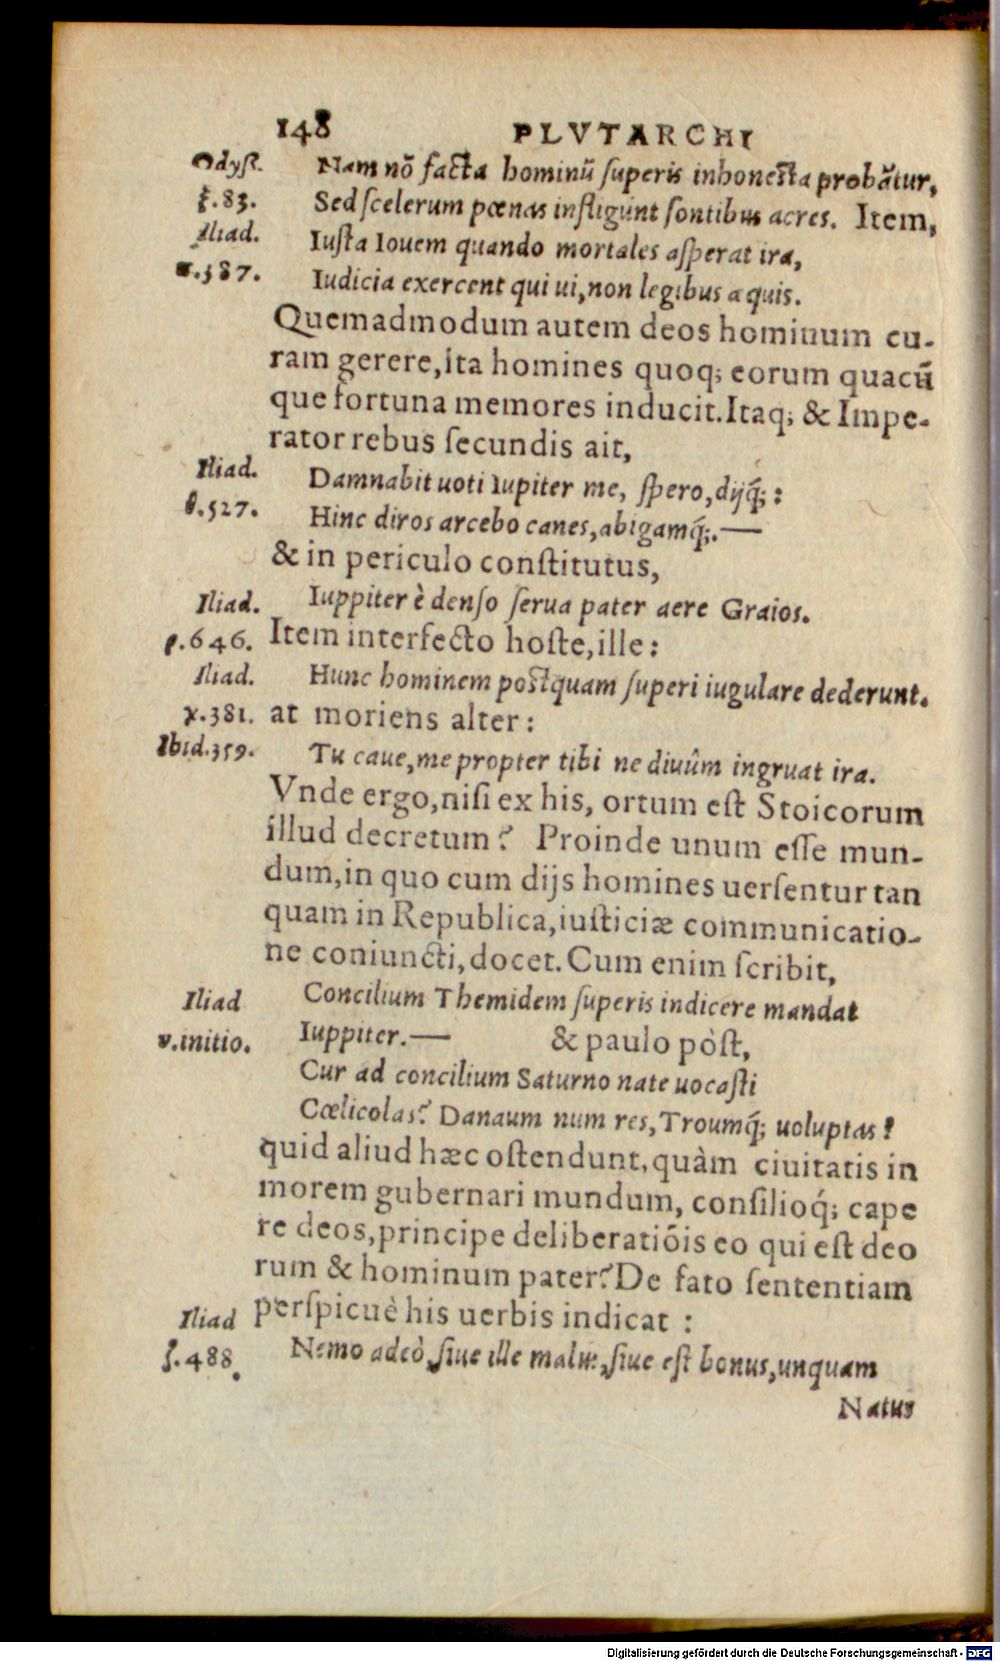 148 PLVTARCHI
Odyss. Nam nõ facta hominũ superis inhonesta probãtur,
ξ.83. Sed scelerum pœnas infligunt sontibus acres. Item,
Iliad. Iusta Iouem quando mortales asperat ira,
π.387. Iudicia exercent qui ui, non legibus æquis.
Quemadmodum autem deos hominum cu-
ram gerere, ita homines quoq; eorum quacũ
que fortuna memores inducit. Itaq; & Impe-
rator rebus secundis ait,
Iliad. Damnabit uoti Iupiter me, spero, dijq́;:
θ.527. Hinc diros arcebo canes, abigamq́;.—
& in periculo constitutus,
Iliad. Iuppiter è denso serua pater aere Graios.
ρ.646. Item interfecto hoste, ille:
Iliad. Hunc hominem postquam superi iugulare dederunt.
χ.381. at moriens alter:
Ibid.359. Tu caue, me propter tibi ne diuûm ingruat ira.
Vnde ergo, nisi ex his, ortum est Stoicorum
illud decretum? Proinde unum esse mun-
dum, in quo cum dijs homines uersentur tan
quam in Republica, iusticiæ communicatio-
ne coniuncti, docet. Cum enim scribit,
Iliad Concilium Themidem superis indicere mandat
υ.initio. Iuppiter.— & paulo pòst,
Cur ad concilium Saturno nate uocasti
Cœlicolas? Danaum num res, Troumq́; uoluptas?
quid aliud hæc ostendunt, quàm ciuitatis in
morem gubernari mundum, consilioq́; cape
re deos, principe deliberatiõis eo qui est deo
rum & hominum pater? De fato sententiam
perspicuè his uerbis indicat:
Iliad
ζ.488. Nemo adeò, siue ille malus, siue est bonus, unquam
Natus
Digitalisierung gefördert durch die Deutsche Forschungsgemeinschaft - DFG